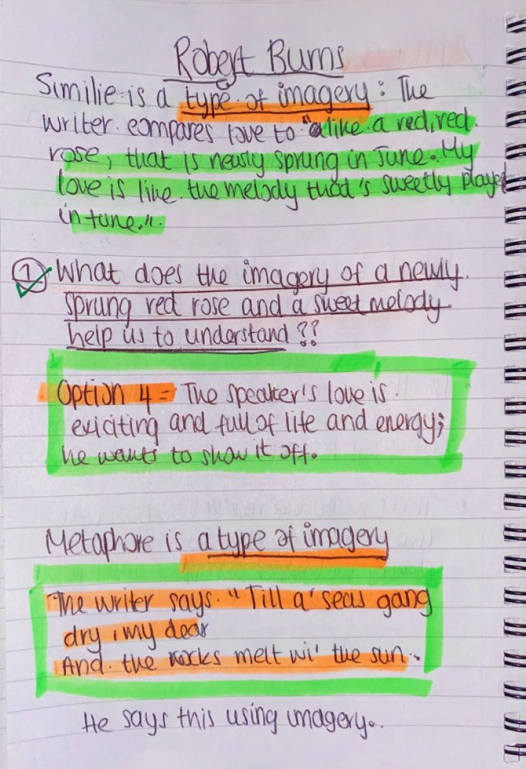 Robert Burns
Similie is a type of imagery: The
writer compares love to "a like a red, red
rose, that is newly sprung in June. My
love is like the melody that's sweetly played
in tune.".
① What does the imagery of a newly
sprung red rose and a sweet melody
help us to understand??
Option 4 = The speaker's love is
exiciting and full of life and energy;
he wants to show it off.
Metaphore is a type of imagery
The writer says. "Till a' seas gang
dry, my dear
And the rocks melt wi' the sun.
He says this using imagery.